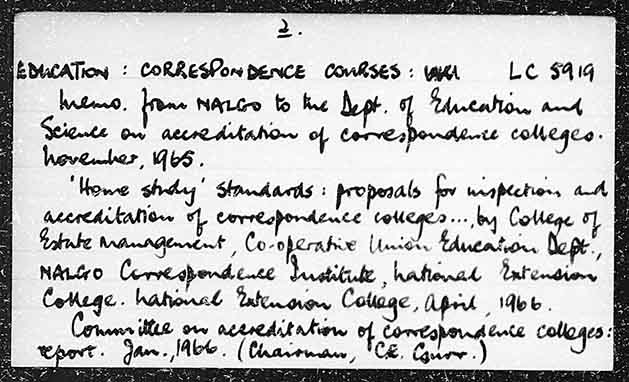 2.
EDUCATION : CORRESPONDENCE COURSES : LC 5919
Memo. from NALGO to the Dept. of Education and
Science on accreditation of correspondence colleges.
November, 1965.
'Home study' standards : proposals for inspection and
accreditation of correspondence colleges..., by College of
Estate Management, Co-operative Union Education Dept.,
NALGO Correspondence Institute, National Extension
College. National Extension College, April, 1966.
Committee on accreditation of correspondence colleges:
report. Jan., 1966. (Chairman, C.E. Gurr.)